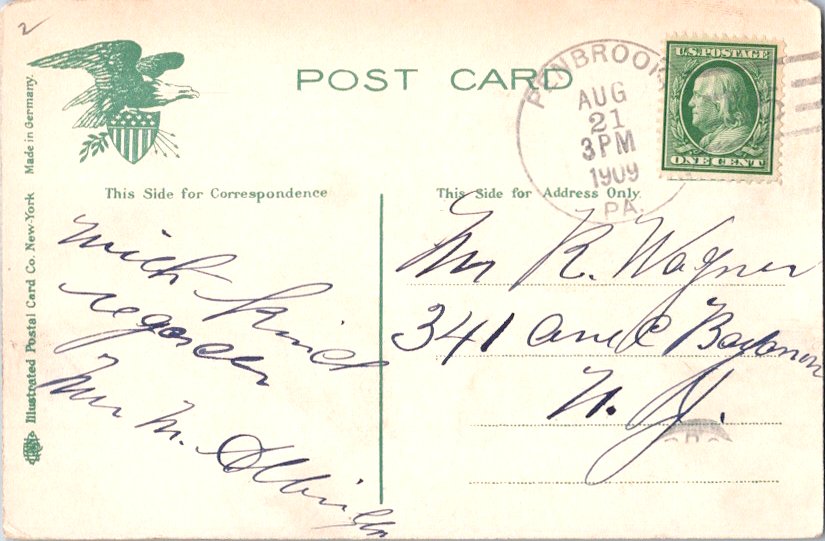 2
POST CARD
U.S. POSTAGE
ONE CENT
PENBROOK
AUG
21
3 PM
1909
PA.
Made in Germany.
Illustrated Postal Card Co. New-York
This Side for Correspondence
This Side for Address Only.
with kind
regards
Mr M.
Mr R. Wagner
341 Ave C Bayonne
N. J.